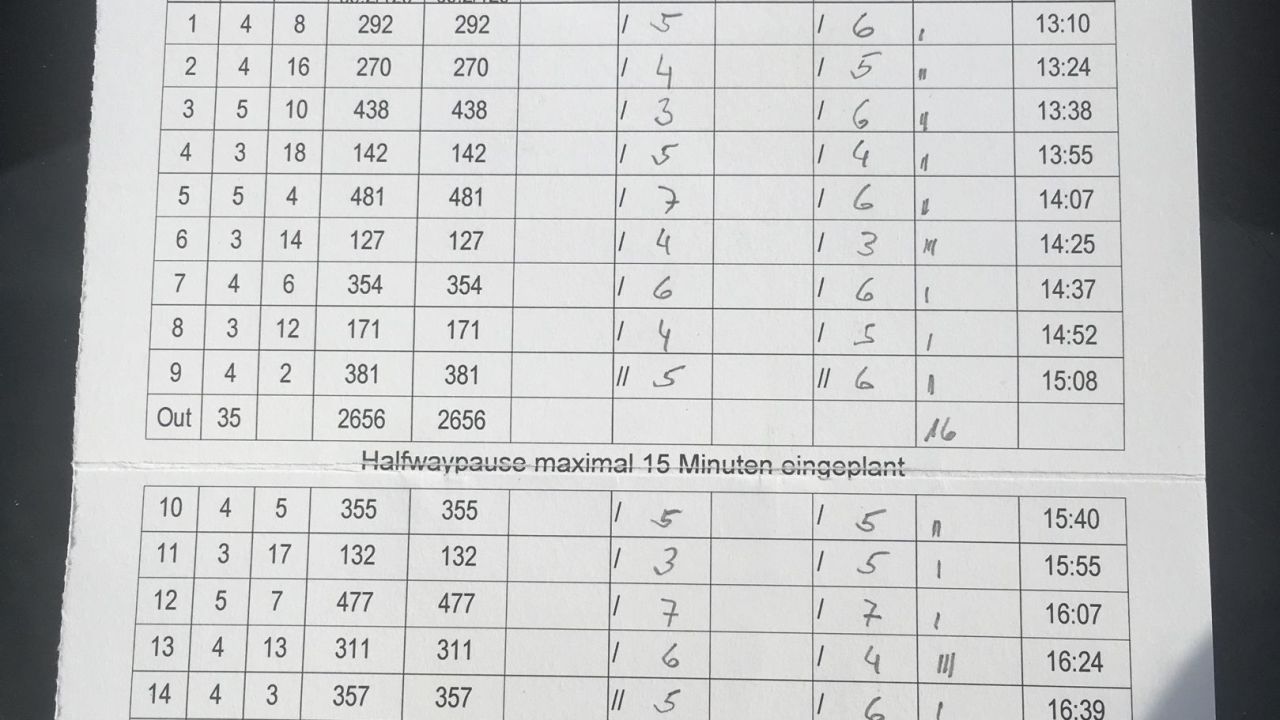 1 4 8 292 292 / 5 / 6 I 13:10
2 4 16 270 270 / 4 / 5 II 13:24
3 5 10 438 438 / 3 / 6 II 13:38
4 3 18 142 142 / 5 / 4 II 13:55
5 5 4 481 481 / 7 / 6 II 14:07
6 3 14 127 127 / 4 / 3 III 14:25
7 4 6 354 354 / 6 / 6 I 14:37
8 3 12 171 171 / 4 / 5 I 14:52
9 4 2 381 381 // 5 // 6 II 15:08
Out 35 2656 2656 16
Halfwaypause maximal 15 Minuten eingeplant
10 4 5 355 355 / 5 / 5 II 15:40
11 3 17 132 132 / 3 / 5 I 15:55
12 5 7 477 477 / 7 / 7 I 16:07
13 4 13 311 311 / 6 / 4 III 16:24
14 4 3 357 357 // 5 / 6 I 16:39